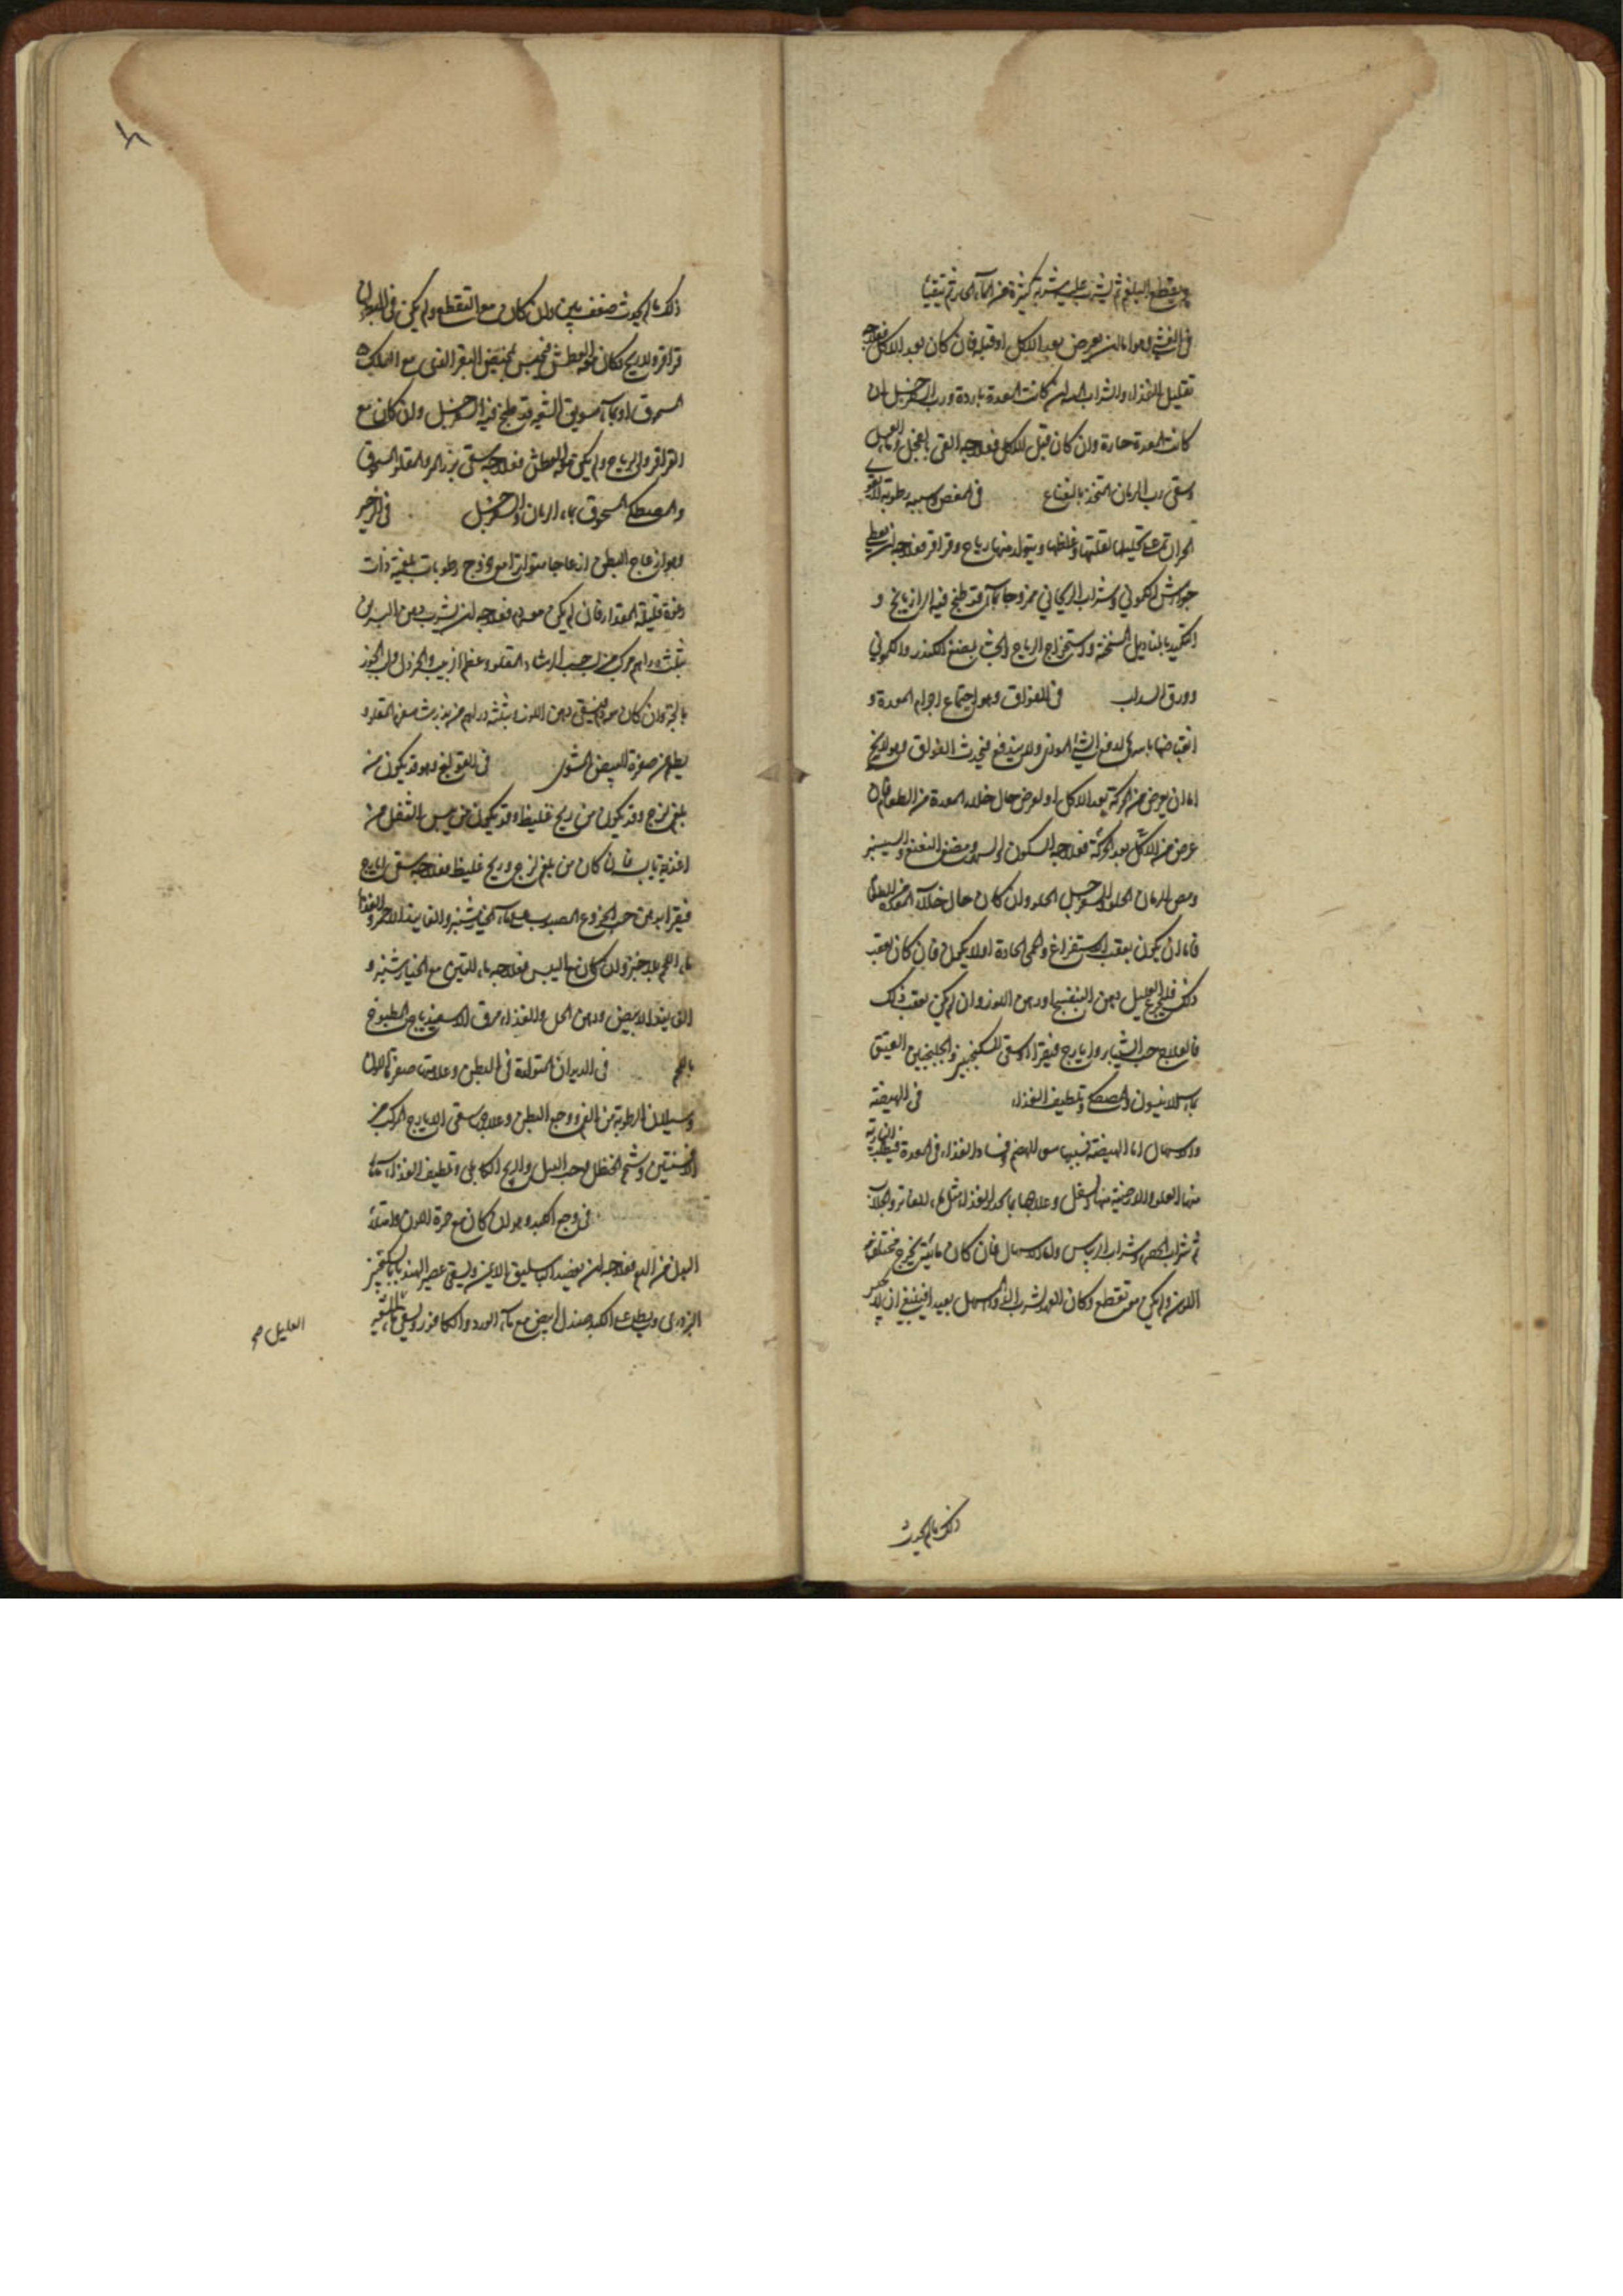 ويقطع البلغم ثم يشرب عليه شربة كثيرة من الماء الحار ثم يتقيأ
في الغثي وهو اما ان يعرض بعد الاكل او قبله فان كان بعد الاكل فعلاجه
تقليل الغذاء والشراب ان كانت المعدة باردة ورب السفرجل ان
كانت المعدة حارة وان كان قبل الاكل فعلاجه القي بالفجل وماء العسل
وسقي رب الرمان المتخذ بالنعناع في المغص وسببه رطوبة لا يقوي
الحرارة على تحليلها لقلتها وغلظها ويتولد منها رياح وقراقر فعلاجه ان يعطي
جوارش الكموني وشراب الريحاني ممزوجا بماء قد طبخ فيه الرازيانج و
التكميد بالمناديل المسخنة واستخراج الرياح بالجشا بمضغ الكندر والكموني
وورق السداب في الفواق وهو اجتماع اجزاء المعدة و
انقباضها باسرها لدفع الشئ الموذي ولا يندفع فيحدث الفواق وهو لا يخ
اما ان يعرض من الحركة بعد الاكل او يعرض حال خلاء المعدة من الطعام فان
عرض من الاكل بعد الحركة فعلاجه السكون ومضغ النعنع والسيسنبر
ومص الرمان الحلو والسفرجل الحلو وان كان حال خلاء المعدة من الطعام
فاما ان يكون بعقب الاستفراغ والحمى الحادة او لا يكون فان كان بعقب
ذلك فليجرع العليل دهن البنفسج او دهن اللوز وان لم يكن بعقب ذلك
فالعلاج حب الشيبار وايارج فيقرا وسقي السكنجبين والجلنجبين العتيق
بماء الانيسون والمصطكي وتلطيف الغذاء في الهيضة
والاسهال اما الهيضة فسببها سوء الهضم وفساد الغذاء في المعدة فيطلب النارية
منها العلو والارضية منها السفل وعلاجها ما يحدر الغذاء مثل ماء الفاتر والجلاب
ثم شراب الحصرم وشراب الريباس واما الاسهال فان كان ما يخرج مختلف
اللون ولم يكن معه تقطع وكان العهد بشرب الدواء المسهل بعيدا فينبغي ان لا يحبس
ذلك ما لم يحدث
ذلك ما لم يحدث ضعف بين وان كان مع التقطع ولم يكن في البطن
قراقر ولا ريح وكان معه العطش فيحبس بمخيض البقر الذي مع الكعك
المدقوق او بماء سويق الشعير قد طبخ فيه السفرجل وان كان مع
القراقر والرياح ولم يكن معه العطش فعلاجه سقي بزر المر والمقلو المسحوق
والمصطكي المسحوق بماء الرمان والسفرجل في الزحير
وهو انزعاج البطن انزعاجا متواترا مع خروج رطوبات بلغمية ذات
رغوة قليلة المقدار فان لم يكن معه دم فعلاجه ان يشرب دهن
بثلثة دراهم مركب من حب الرشاد المقلو وعظم الزبيب والخردل ولب الجوز
بالجبن وان كان معه دم فيسقى دهن اللوز وثلثة دراهم من بزر المقلو و
يطعم من صفرة البيض المشوي في القولنج وهو قد يكون من
بلغم لزج وقد يكون من ريح غليظ وقد يكون من يبس الثفل من
اغذية يابسة فان كان من بلغم لزج وريح غليظ فعلاجه سقي ايارج
فيقرا بدهن حب الخروع المصبوب على ماء الخيارشنبر والفانيذ الاحمر والغذاء
ماء اللحم بلا خبز وان كان مع اليبس فعلاجه ماء التين مع الخيارشنبر و
الفانيذ الابيض ودهن الخل والغذاء مرق الاسفيدباج المطبوخ
باللحم في الديدان المتولدة في البطن وعلامته صفرة اللون
وسيلان الرطوبة من الفم ووجع البطن وعلاجه سقي الايارج المركب من
الافسنتين وشحم الحنظل وحب النيل والبرنج الكابلي وتلطيف الغذاء
في وجع الكبد وهو ان كان مع حمرة اللون وامتلاء
البدن من الدم فعلاجه ان يفصد الباسليق الايمن ويسقى عصير الهندبا بالسكنجبين
البزوري ويطلى على الكبد صندل ابيض مع ماء الورد والكافور ويسقى
العليل